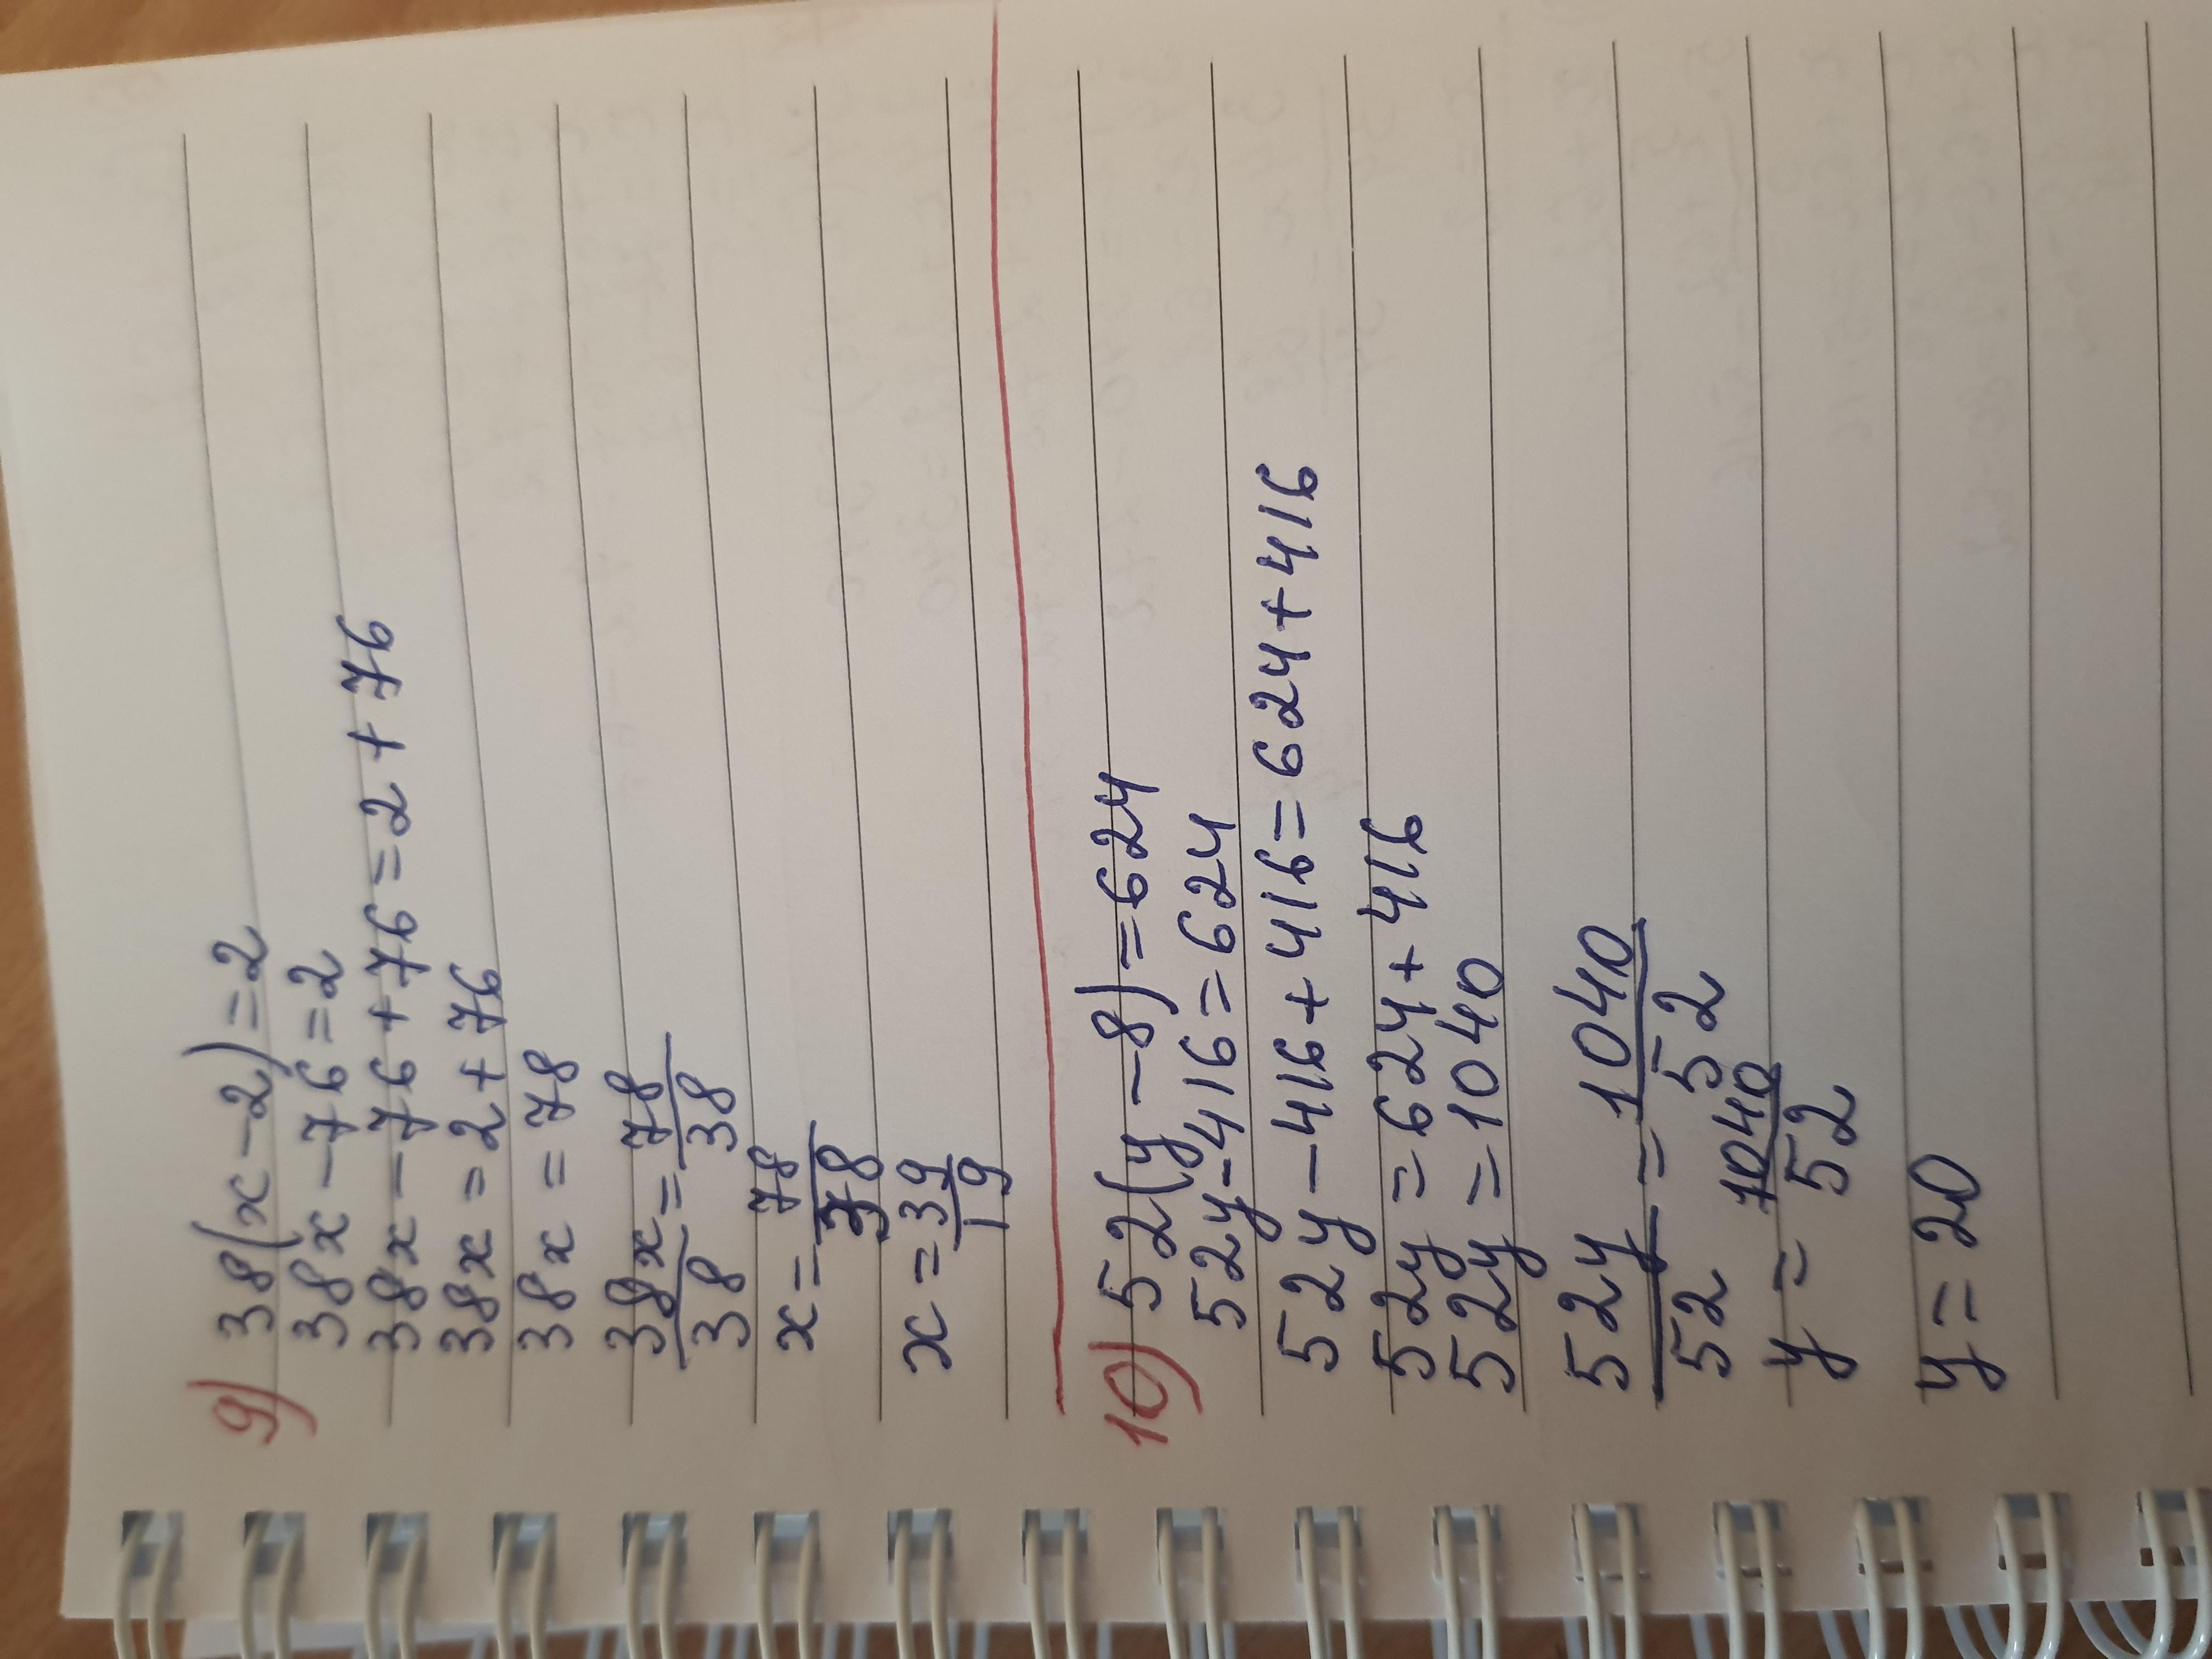 9) 38(x-2)=2
38x-76=2
38x-76+76=2+76
38x=2+76
38x=78
38x/38=78/38
x=78/38
x=39/19
10) 52(y-8)=624
52y-416=624
52y-416+416=624+416
52y=624+416
52y=1040
52y/52=1040/52
y=1040/52
y=20